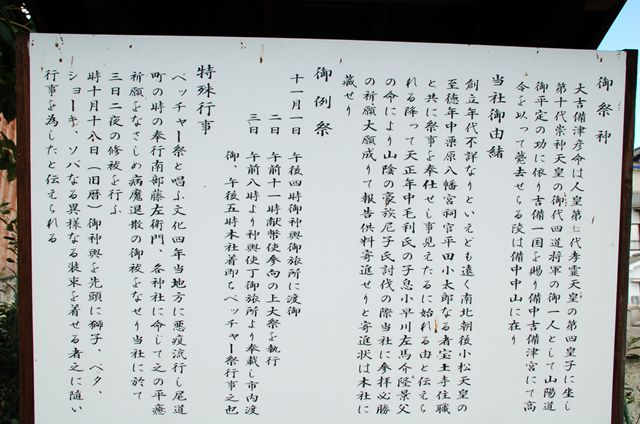 御祭神
大吉備津彦命は人皇第七代孝霊天皇の第四皇子に坐し
第十代崇神天皇の御代四道将軍の御一人として山陽道
御平定の功に依り吉備一国を賜り備中吉備津宮にて高
令を以って薨去せらる陵は備中中山に在り
当社御由緒
創立年代不詳なりといえども遠く南北朝後小松天皇の
至徳年中栗原八幡宮祠官平田小太郎なる者宝土寺住職
と共に祭事を奉仕せし事見えたるに始れる由と伝えら
れる降って天正年中毛利氏の子息小早川左馬介隆景父
の命により山陰の豪族尼子氏討伐の際当社に参拝必勝
の祈願大願成りて報告供料寄進せりと寄進状は本社に
蔵せり
御例祭
十一月一日 午後四時御神輿御旅所に渡御
二日 午前十一時献幣使参向の上大祭を執行
三日 午前八時より神輿使丁御旅所より奉載し市内渡
御、午後五時本社着御らベッチャー祭行事之也
特殊行事
ベッチャー祭と唱ふ文化四年当地方に悪疫流行し尾道
町の時の奉行南部藤左衛門、各神社に命じて之の平癒
祈願をなさしめ病魔退散の御祓をなせり当社に於て
三日二夜の修祓を行ふ
時十月十八日（旧暦）御神輿を先頭に獅子、ベタ、
ショーキ、ソバなる異様なる装束を着せる者之に随い
行事を為したと伝えられる